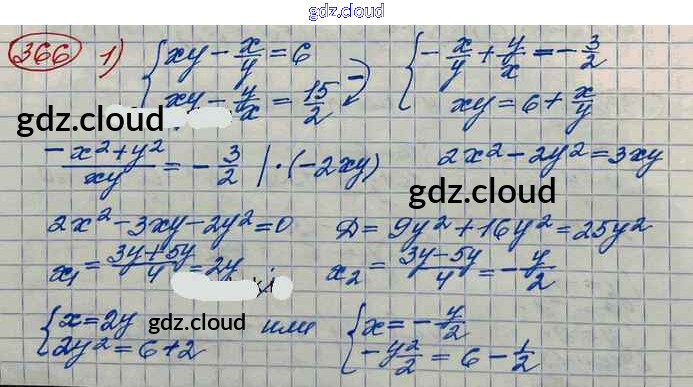 gdz.cloud
366 1) { xy - x/y = 6 { -x/y + y/x = -3/2
xy - y/x = 15/2 xy = 6 + x/y
gdz.cloud
(-x² + y²)/xy = -3/2 | ·(-2xy) 2x² - 2y² = 3xy
gdz.cloud
2x² - 3xy - 2y² = 0 D = 9y² + 16y² = 25y²
x₁ = (3y + 5y)/4 = 2y x₂ = (3y - 5y)/4 = -y/2
{ x = 2y gdz.cloud или { x = -y/2
2y² = 6 + 2 -y²/2 = 6 - 1/2